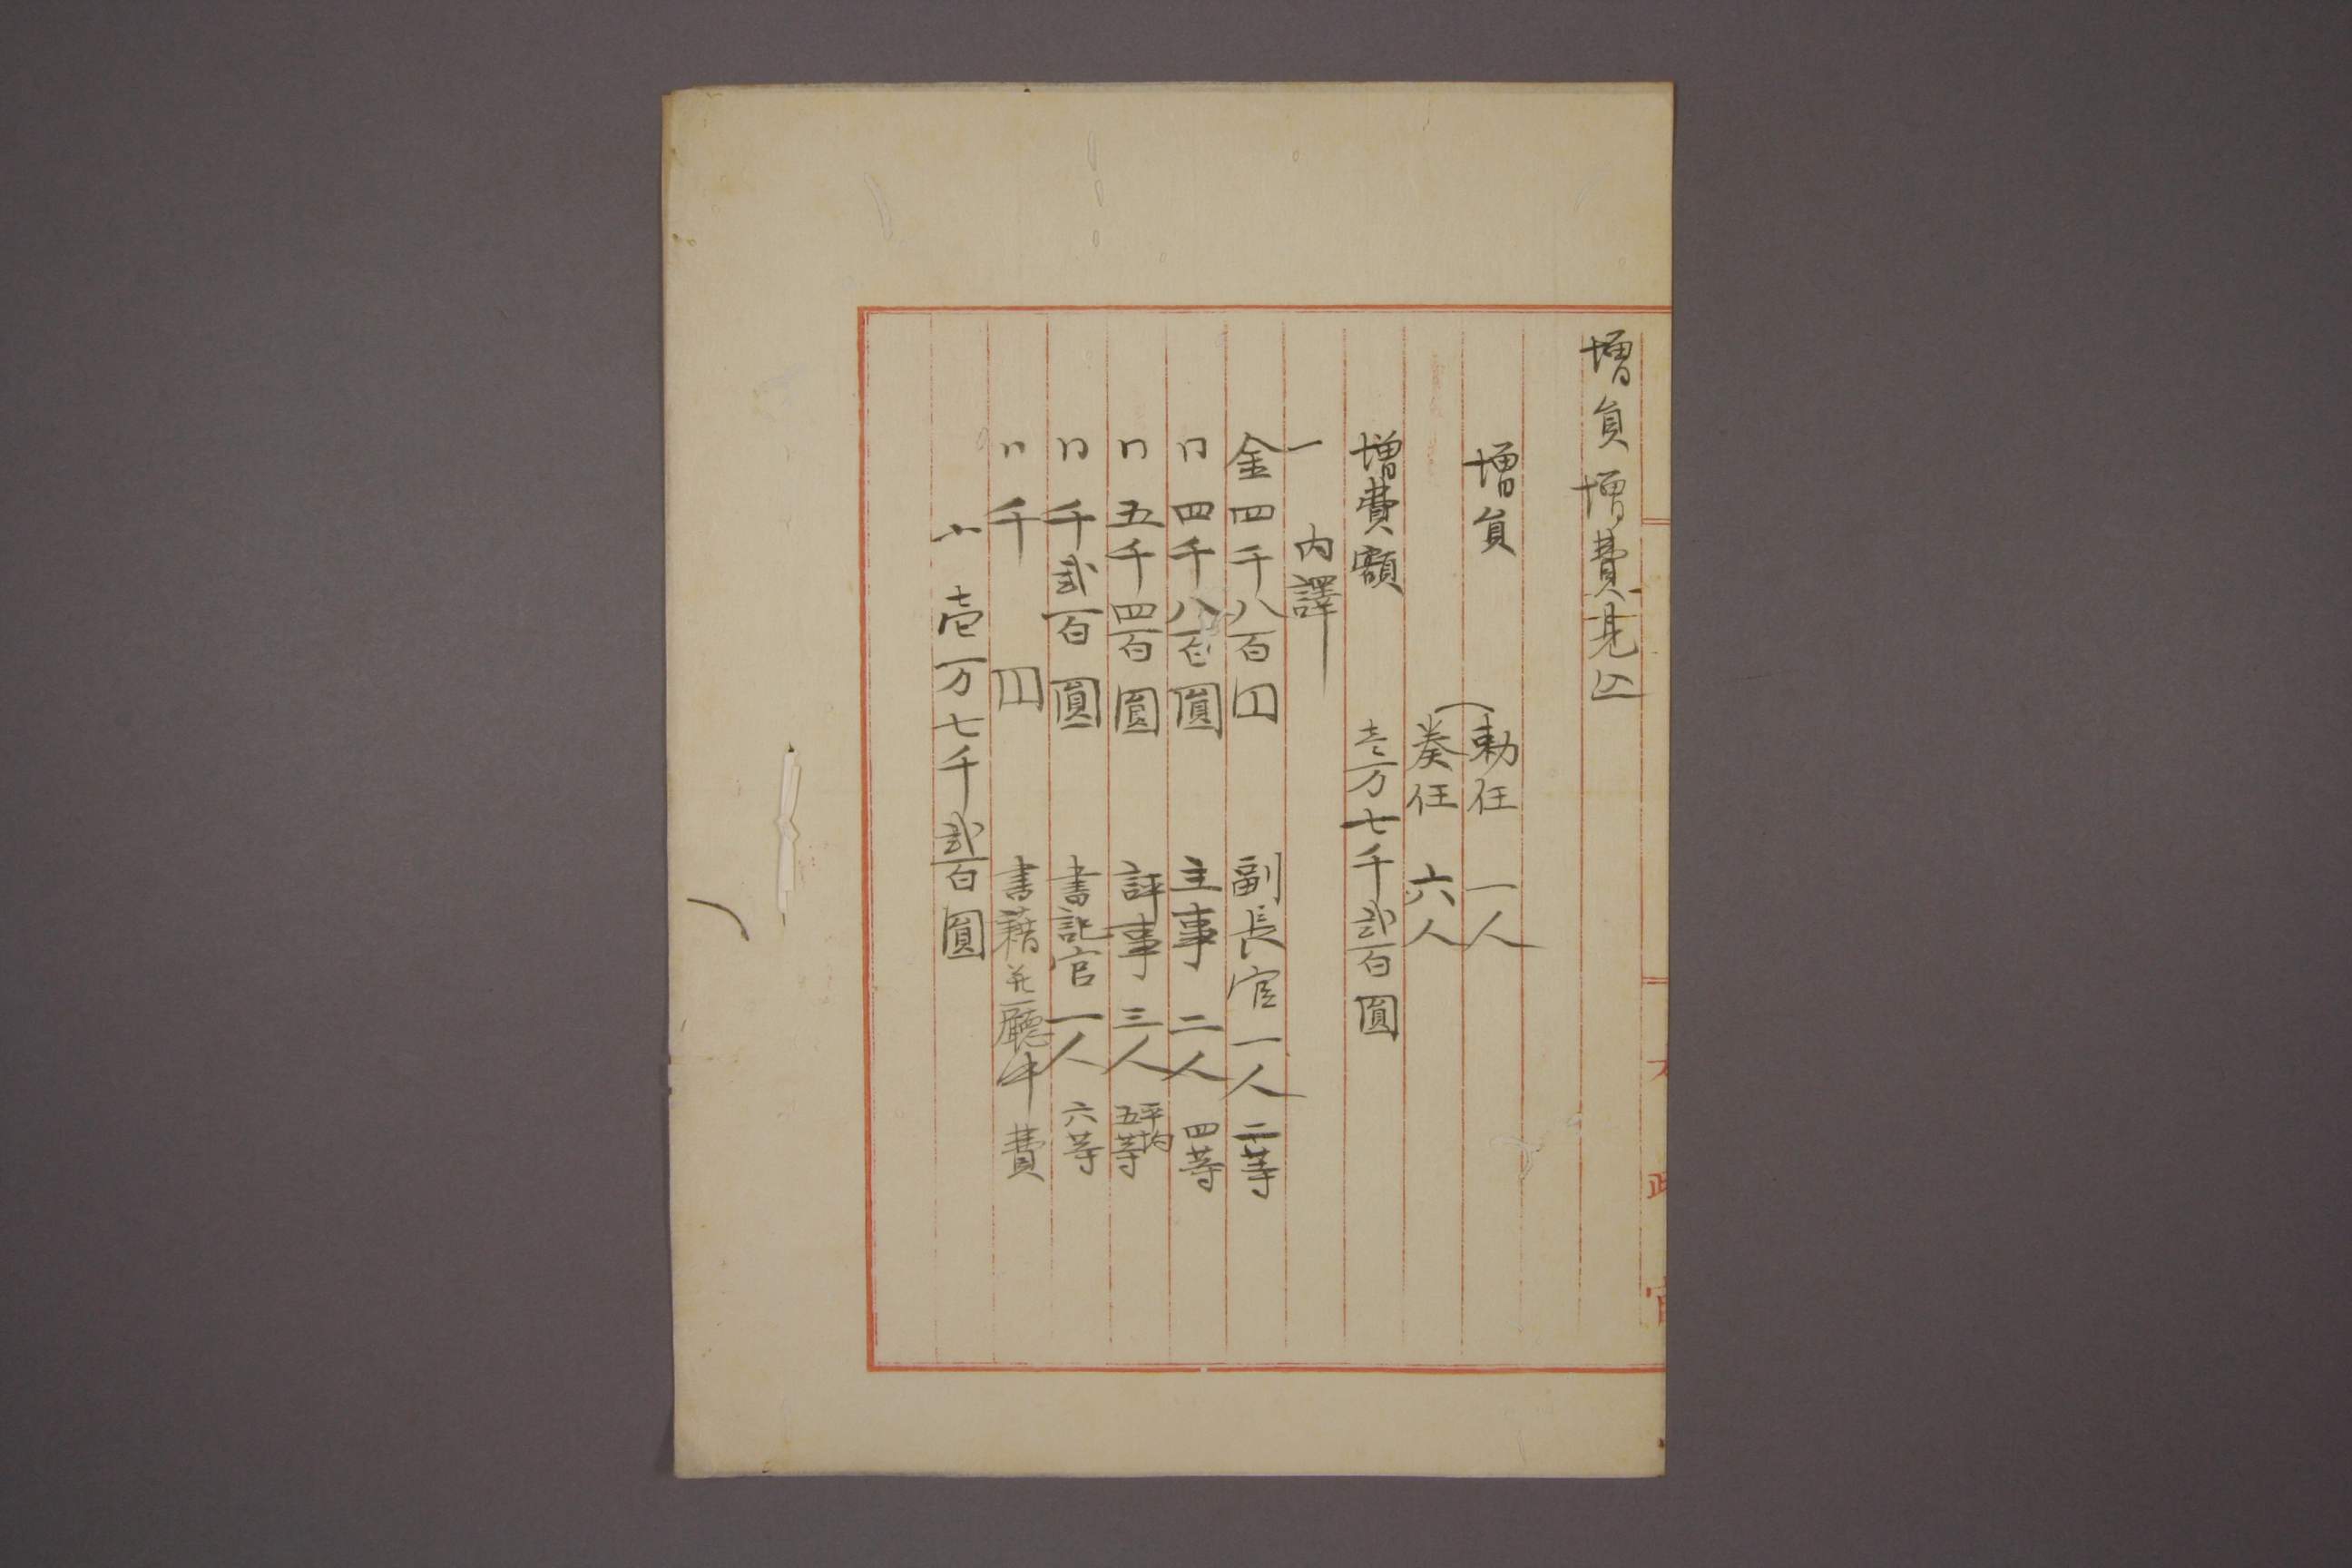 増員増費見込
増員 勅任 一人
奏任 六人
増費額 壱万七千弐百圓
一 内譯
金四千八百円 副長官一人 二等
〃四千八百圓 主事 二人 四等
〃五千四百圓 評事 三人 平均五等
〃千弐百圓 書記官一人 六等
〃千 円 書籍并廳中費
〆壱万七千弐百圓
太政官